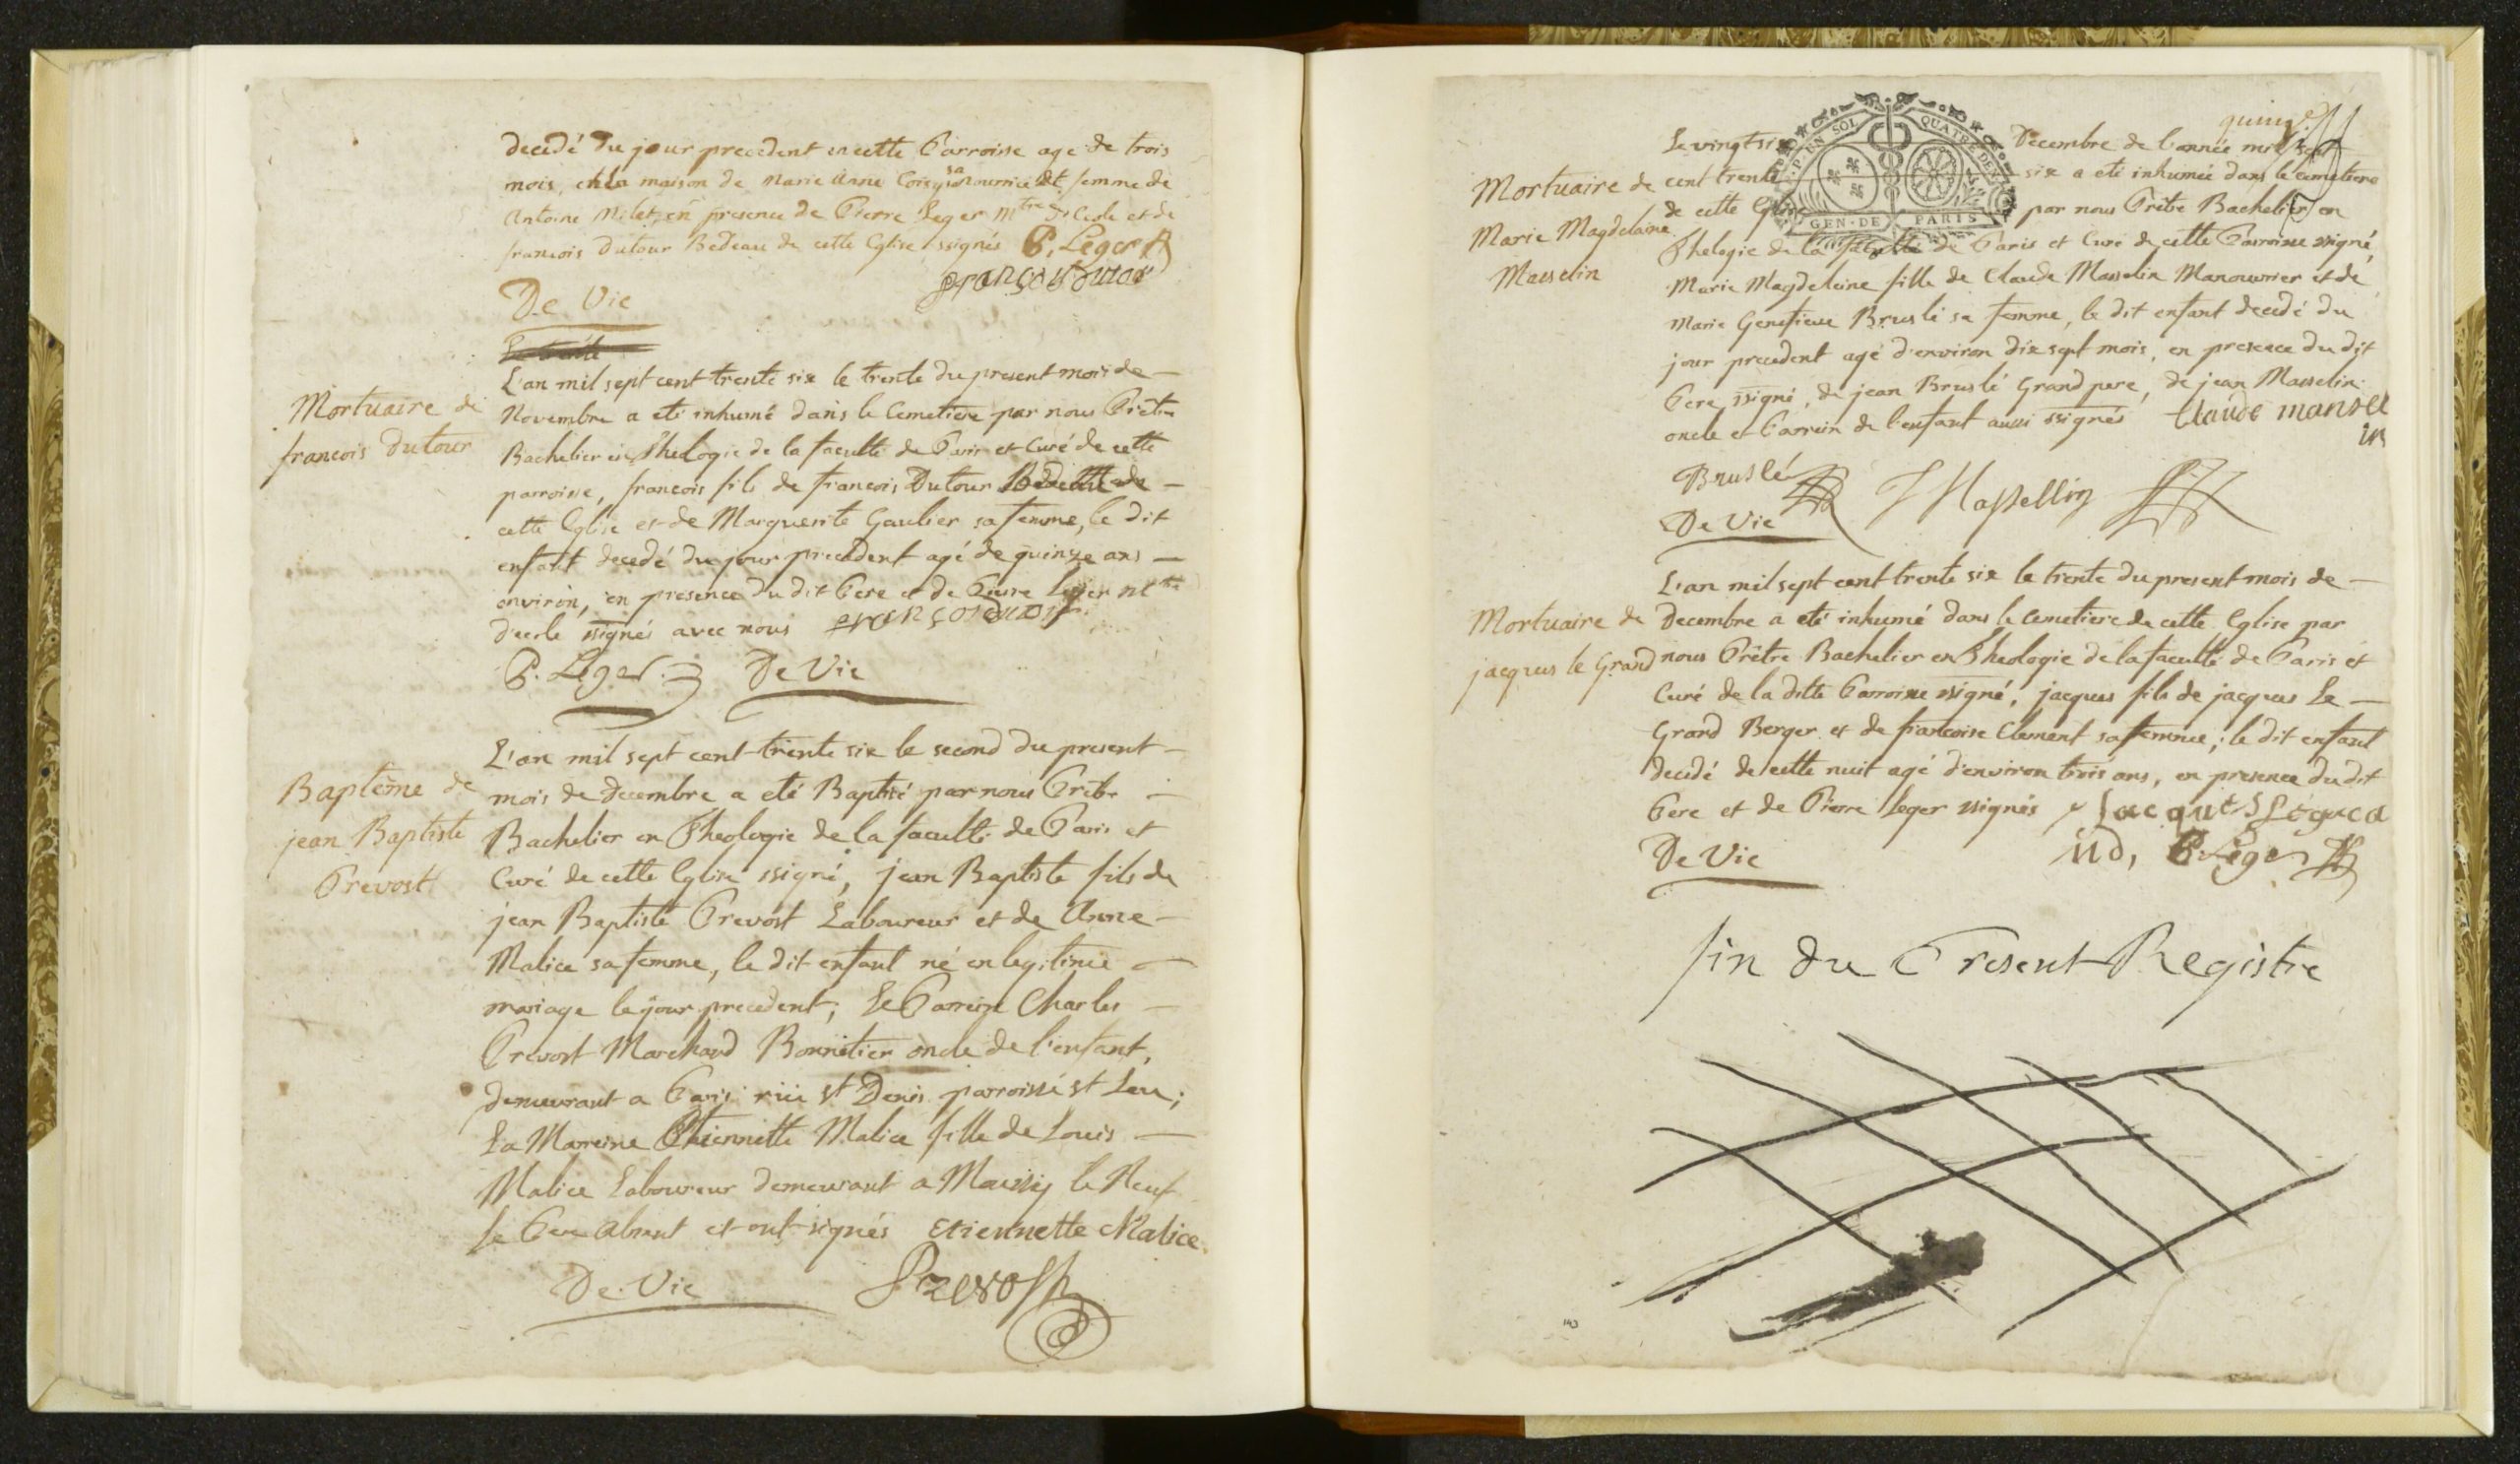 decedé du jour precedent en cette Parroisse age de trois
mois, en la maison de Marie Anne sa nourrice et femme de
Antoine Milet, en presence de Pierre Leger Mtre d'Ecole et de
francois Dutour Bedeau de cette Eglise ssignés P. Leger
françois dutour
De Vie
L'an mil sept cent trente six le trente du present mois de
Mortuaire de
francois Dutour
Novembre a eté inhumé dans le Cemetiere par nous Prêtre
Bachelier en Theologie de la faculté de Paris et Curé de cette
parroisse, francois fils de francois Dutour Bedeau de
cette Eglise et de Marguerite Gaulier sa femme, le dit
enfant decedé du jour precedent agé de quinze ans
environ, en presence du dit Pere et de Pierre Leger Mtre
d'ecole ssignés avec nous
P. Leger De Vie
L'an mil sept cent trente six le second du present
Baptême de
jean Baptiste
Prevost
mois de Decembre a eté Baptisé par nous Prêtre
Bachelier en Theologie de la faculté de Paris et
Curé de cette Eglise ssigné, jean Baptiste fils de
jean Baptiste Prevost Laboureur et de Anne
Malice sa femme, le dit enfant né en legitime
mariage le jour precedent; Le Parrein Charles
Prevost Marchand Bonnetier oncle de l'enfant,
demeurant a Paris rüe st Denis parroisse st Leu;
La Marreine Etiennette Malice fille de Louis
Malice Laboureur demeurant a Maissy le Neuf
le Pere absent et ont signés Etiennette Malice
De Vie Prevost
quinze
GEN. DE PARIS
Le vingt six Decembre de l'année mil sept
Mortuaire de
Marie Magdelaine
Masselin
cent trente six a eté inhumée dans le Cemetiere
de cette Eglise par nous Prêtre Bachelier en
Thelogie de la faculté de Paris et Curé de cette Parroisse ssigné,
Marie Magdeleine fille de Claude Masselin Manouvrier et de
Marie Genefieve Bruslé sa femme, le dit enfant decedé du
jour precedent agé d'environ dix sept mois, en presence du dit
Pere ssigné, de jean Bruslé Grand pere, de jean Masselin
oncle et Parrein de l'enfant aussi ssignés Claude mansel
in
Bruslé J Massellin
De Vie
L'an mil sept cent trente six le trente du present mois de
Mortuaire de
jacques le Grand
Decembre a eté inhumé dans le Cemetiere de cette Eglise par
nous Prêtre Bachelier en Theologie de la faculté de Paris et
Curé de la ditte Parroisse ssigné, jacques fils de jacques Le
Grand Berger et de francoise Clement sa femme; le dit enfant
decedé de cette nuit agé d'environ trois ans, en presence du dit
Pere et de Pierre Leger ssignés
De Vie P. Leger
fin du Present Registre